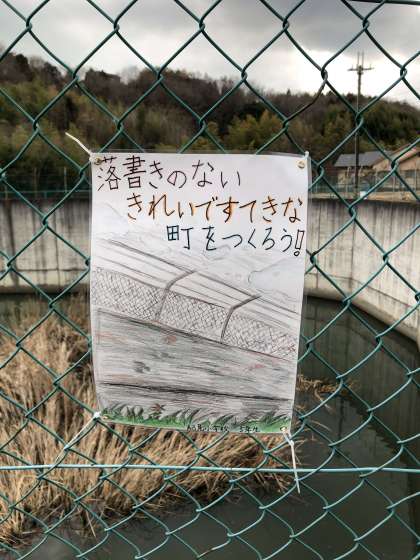 落書きのない
きれいですてきな
町をつくろう!!
小学校 5年生